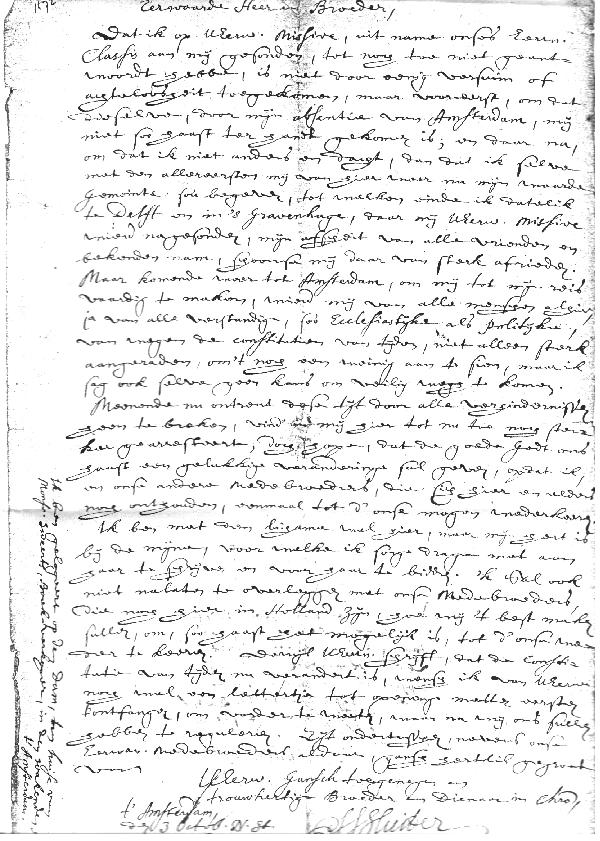 Eerwaarde Heer en Broeder,
Dat ik op UEerw. Missive, uit name onses Eerw.
Classis aan mij gesonden, tot nog toe niet geant-
woordt hebbe, is niet door eenig versuim of
agteloosheit toegekomen, maar voor eerst, om dat
deselve, door mijn absentie van Amsterdam, mij
niet soo haast ter handt gekomen is; en daar na,
om dat ik niet anders en dagt, dan dat ik selve
met den allereersten mij van hier weer na mijn waarde
Gemeinte sou begeven, tot welken einde ik datelik
te Delft en in 's Gravenhage, daar mij UEerw. Missive
wierd nagesonden, mijn afscheit van alle vrienden en
bekenden nam, hoewel mij daar van sterk afrieden.
Maar komende weer tot Amsterdam, om mij tot mijn reis
vaardig te maken, wierd mij van alle menschen
ja van alle verstandige, soo Ecclesiastijke als politijke,
van wegen de constitutien van tijden, niet alleen sterk
aangeraden, om 't nog een weinig aan te sien, maar ik
sag ook selve geen kans om veilig weg te komen.
Meenende nu ontrent dese tijt door alle verhindernissen
heen te breken, vind ik mij hier tot nu toe nog
gearresteert, dog hope, dat de goede Godt ons
haast een gelukkige veranderinge sal geven, opdat ik,
en onse andere Medebroeders, die sig hier en elders
nog onthouden, eenmaal tot d'onse mogen wederkeeren.
Ik ben met den lighame wel hier, maar mijn hert is
bij de mijne, voor welke ik sorge dragen met aan
haar te schrijven en voor haar te bidden. Ik sal ook
niet nalaten te overleggen met onse Medebroeders,
die nog hier in Holland zijn, hoe wij 't best maken
sullen, om, soo haast het mogelijk is, tot d'onse we-
der te keeren. Dewijl UEerw. schrijft, dat de consti-
tutie van tijden nu verandert is, wensch ik van UEerw.
nog wel een lettertje tot met den eersten
t'ontfangen, om verder te weten, waar na wij ons sullen
hebben te reguleren. Zijt ondertussen, nevens onse
Eerwaer. Medebroeders aldaer hertlik gegroet
van
UEerw. Gansch toegenegen en
trouwhertige Broeder en Dienaar in Christo,
t' Amsterdam
den 3 Oct.
Ik ben gelogeert op den dam, ten huise van
t' Amsterdam.